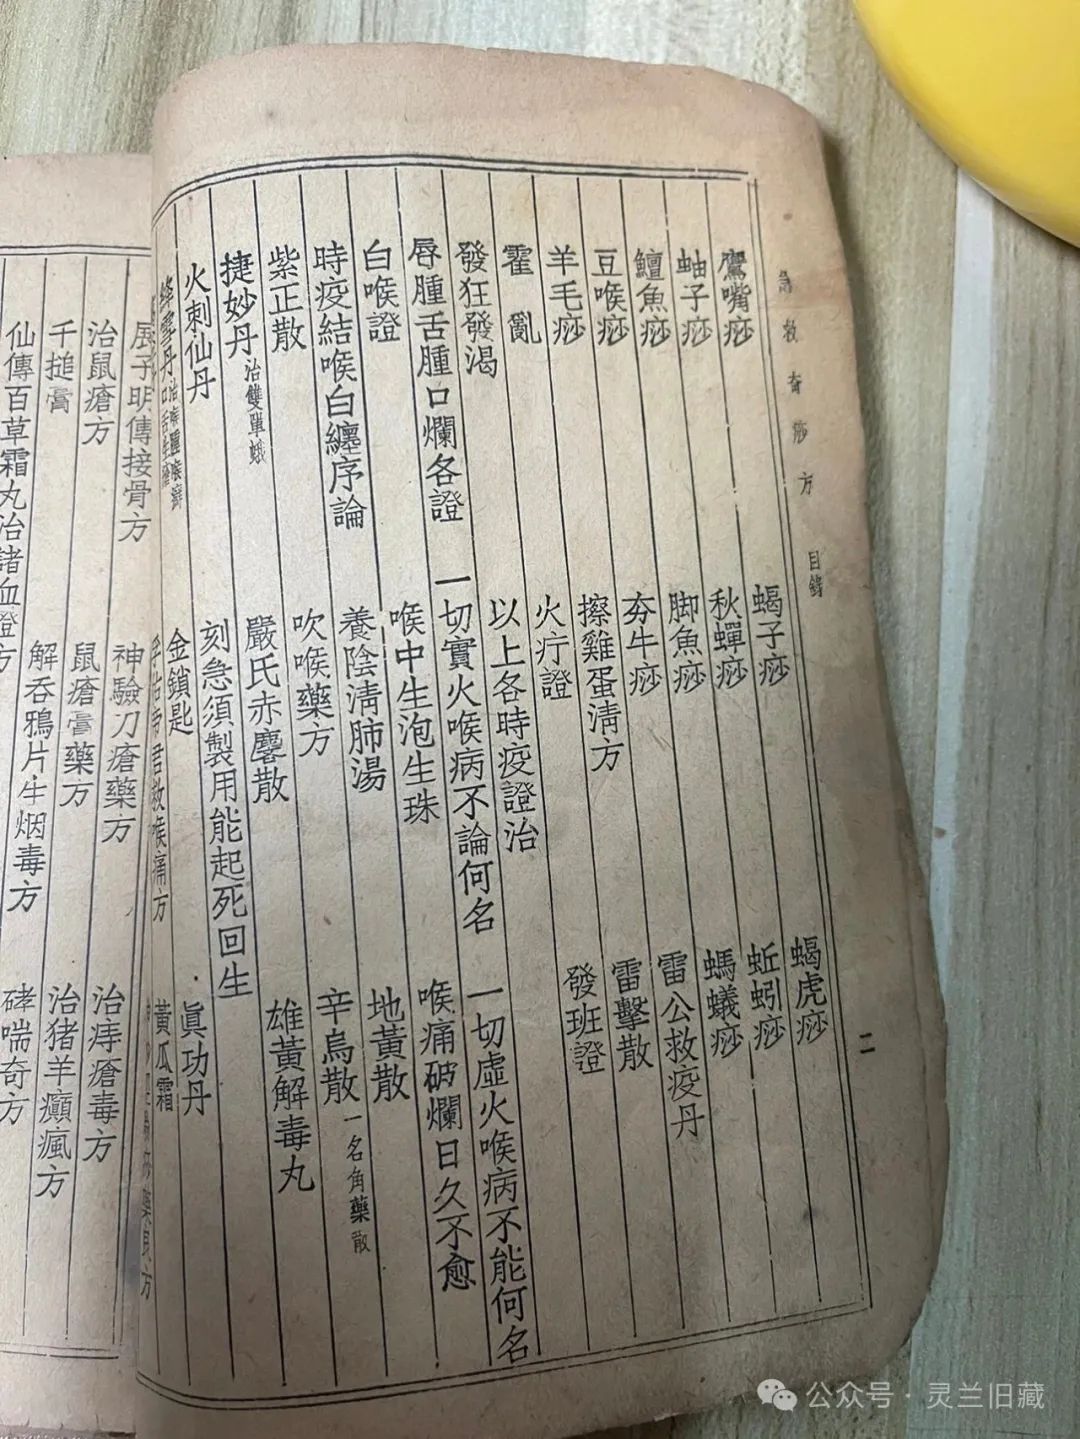 急救奇痧方 目錄 二
鷹嘴痧 蝎子痧 蝎虎痧
蚰子痧 秋蟬痧 蚯蚓痧
鱣魚痧 脚魚痧 螞蟻痧
豆喉痧 夯牛痧 雷公救疫丹
羊毛痧 擦雞蛋淸方 雷擊散
霍亂 火疔證 發班證
發狂發渴 以上各時疫證治
唇腫舌腫口爛各證 一切實火喉病不論何名 一切虛火喉病不能何名
白喉證 喉中生泡生珠 喉痛破爛日久不愈
時疫結喉白纏序論 養陰淸肺湯 地黃散
紫正散 吹喉藥方 辛烏散一名角藥散
捷妙丹治雙單蛾 嚴氏赤麐散 雄黃解毒丸
火刺仙丹 刻急須製用能起死回生
絳雪丹 金鎖匙 眞功丹
帝君救喉痛方 黃瓜霜
藥良方
子明傳接骨方 神驗刀瘡藥方 治痔瘡毒方
治鼠瘡方 鼠瘡膏藥方 治猪羊癲瘋方
千搥膏 解呑鴉片生烟毒方 哮喘奇方
仙傳百草霜丸治諸血證方